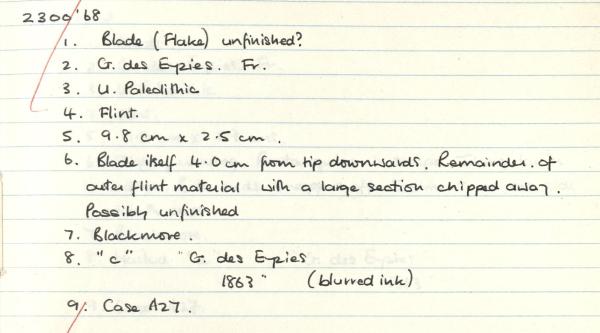 2300'68
1. Blade (Flake) unfinished?
2. G. des Eyzies. Fr.
3. U. Paleolithic
4. Flint.
5. 9.8 cm x 2.5 cm.
6. Blade itself 4.0 cm from tip downwards. Remainder of
outer flint material with a large section chipped away.
Possibly unfinished
7. Blackmore.
8. "c" "G. des Eyzies
1863" (blurred ink)
9. Case A27.